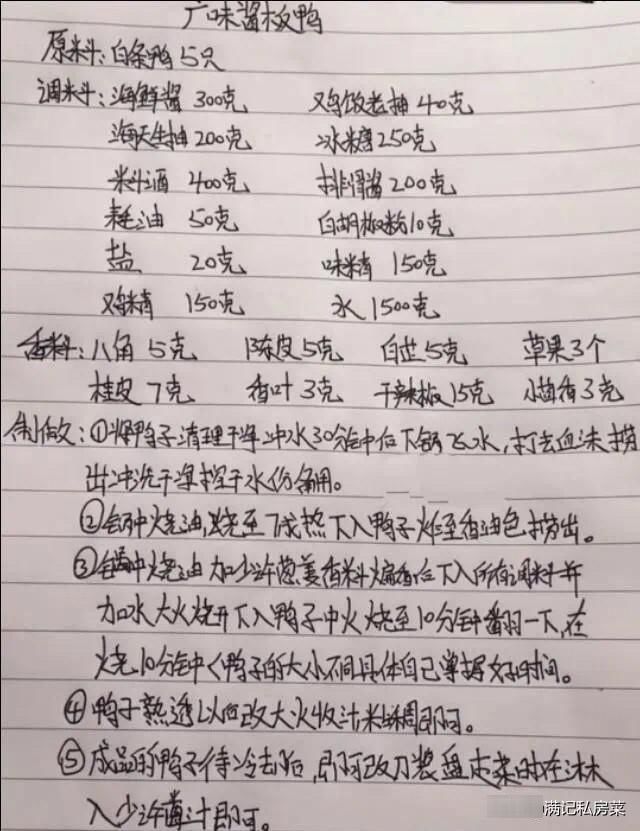 广味酱板鸭
原料：白条鸭 5只
调料：海鲜酱 300克 鸡饭老抽 40克
海天生抽 200克 冰糖 250克
料酒 400克 排骨酱 200克
耗油 50克 白胡椒粉10克
盐 20克 味精 150克
鸡精 150克 水 1500克
香料：八角 5克 陈皮5克 白芷5克 草果3个
桂皮 7克 香叶 3克 干辣椒15克 小茴香3克
制做：①将鸭子清理干净冲水30分钟后下锅飞水，打去血沫捞
出冲洗干净控干水份备用。
②锅中烧油，烧至7成热下入鸭子炸至香油色捞出。
③锅中烧油 加少许葱姜香料煸香后下入所有调料并
加水大火烧开下入鸭子中火烧至10分钟翻一下，在
烧10分钟〈鸭子的大小不同具体自己掌握好时间。
④鸭子熟透以后改大火收汁粘稠即可。
⑤成品的鸭子待冷却后，即可改刀装盘走菜时在淋
入少许酱汁即可。
满记私房菜